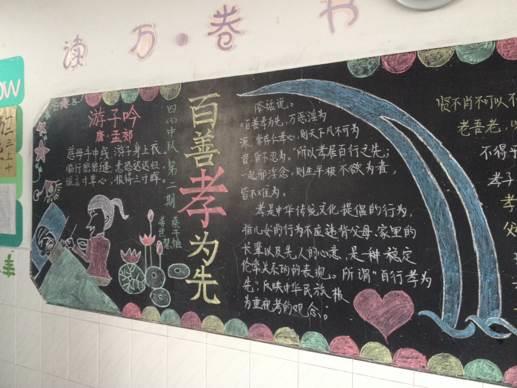 读万·卷书
游子吟
唐·孟郊
慈母手中线,游子身上衣,
临行密密缝,意恐迟迟归。
寸草心,报得三寸晖。
四(1)中队
第二期
百善孝为先
俗话说:
"百善孝为先,万恶淫为
源,常存仁孝心,则天下凡不可为
者,皆不忍为,"所以孝居百行之先;
一起邪淫念,则生平极不欲为者,
皆不难为。
孝是中华传统文化提倡的行为,
指儿女的行为不应违背父母、家里的
长辈以及先人的心意,是一种稳定
伦常关系的表现。所谓"百行孝为
先",反映中华民族极
为重视孝的观念。
不肖不可以不
老吾老,以
不得乎
孝子
父